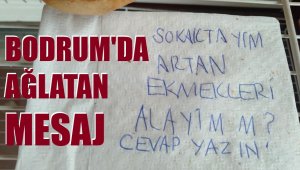 BODRUM'DA
AĞLATAN
MESAJ
SOKAKTAYIM
ARTAN
EKMEKLERİ
ALAYIM M?
CEVAP YAZIN!